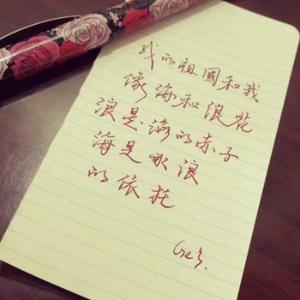 我的祖國和我
像海和浪花
浪是海的赤子
海是那浪
的依托